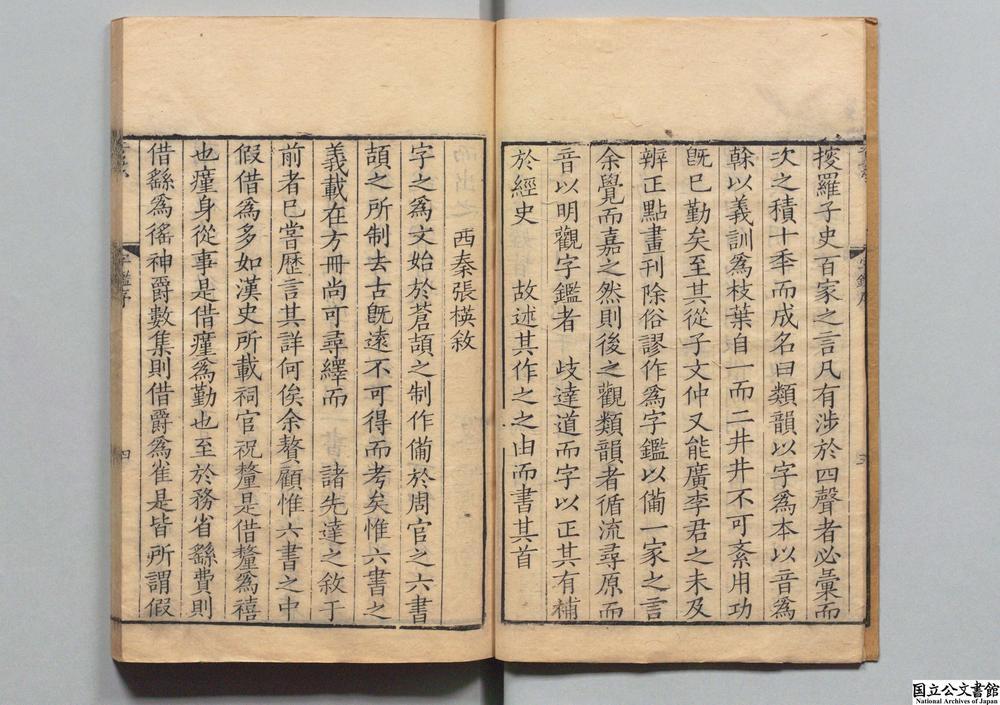 搜羅子史百家之言凡有涉於四聲者必彙而
次之積十秊而成名曰類韻以字爲本以音爲
榦以義訓爲枝葉自一而二井井不可紊用功
旣已勤矣至其從子文仲又能廣李君之未及
辨正點畫刊除俗謬作爲字鑑以備一家之言
余覺而嘉之然則後之觀類韻者循流尋原而
音以明觀字鑑者 歧達道而字以正其有補
於經史 故述其作之之由而書其首
西秦張楧敘
字之爲文始於蒼頡之制作備於周官之六書
頡之所制去古旣遠不可得而考矣惟六書之
義載在方冊尚可尋繹而 諸先達之敘于
前者已嘗歷言其詳何俟余贅顧惟六書之中
假借爲多如漢史所載祠官祝釐是借釐爲禧
也廑身從事是借廑爲勤也至於務省繇費則
借繇爲徭神爵數集則借爵爲雀是皆所謂假
字鑑序
四
国立公文書館
National Archives of Japan